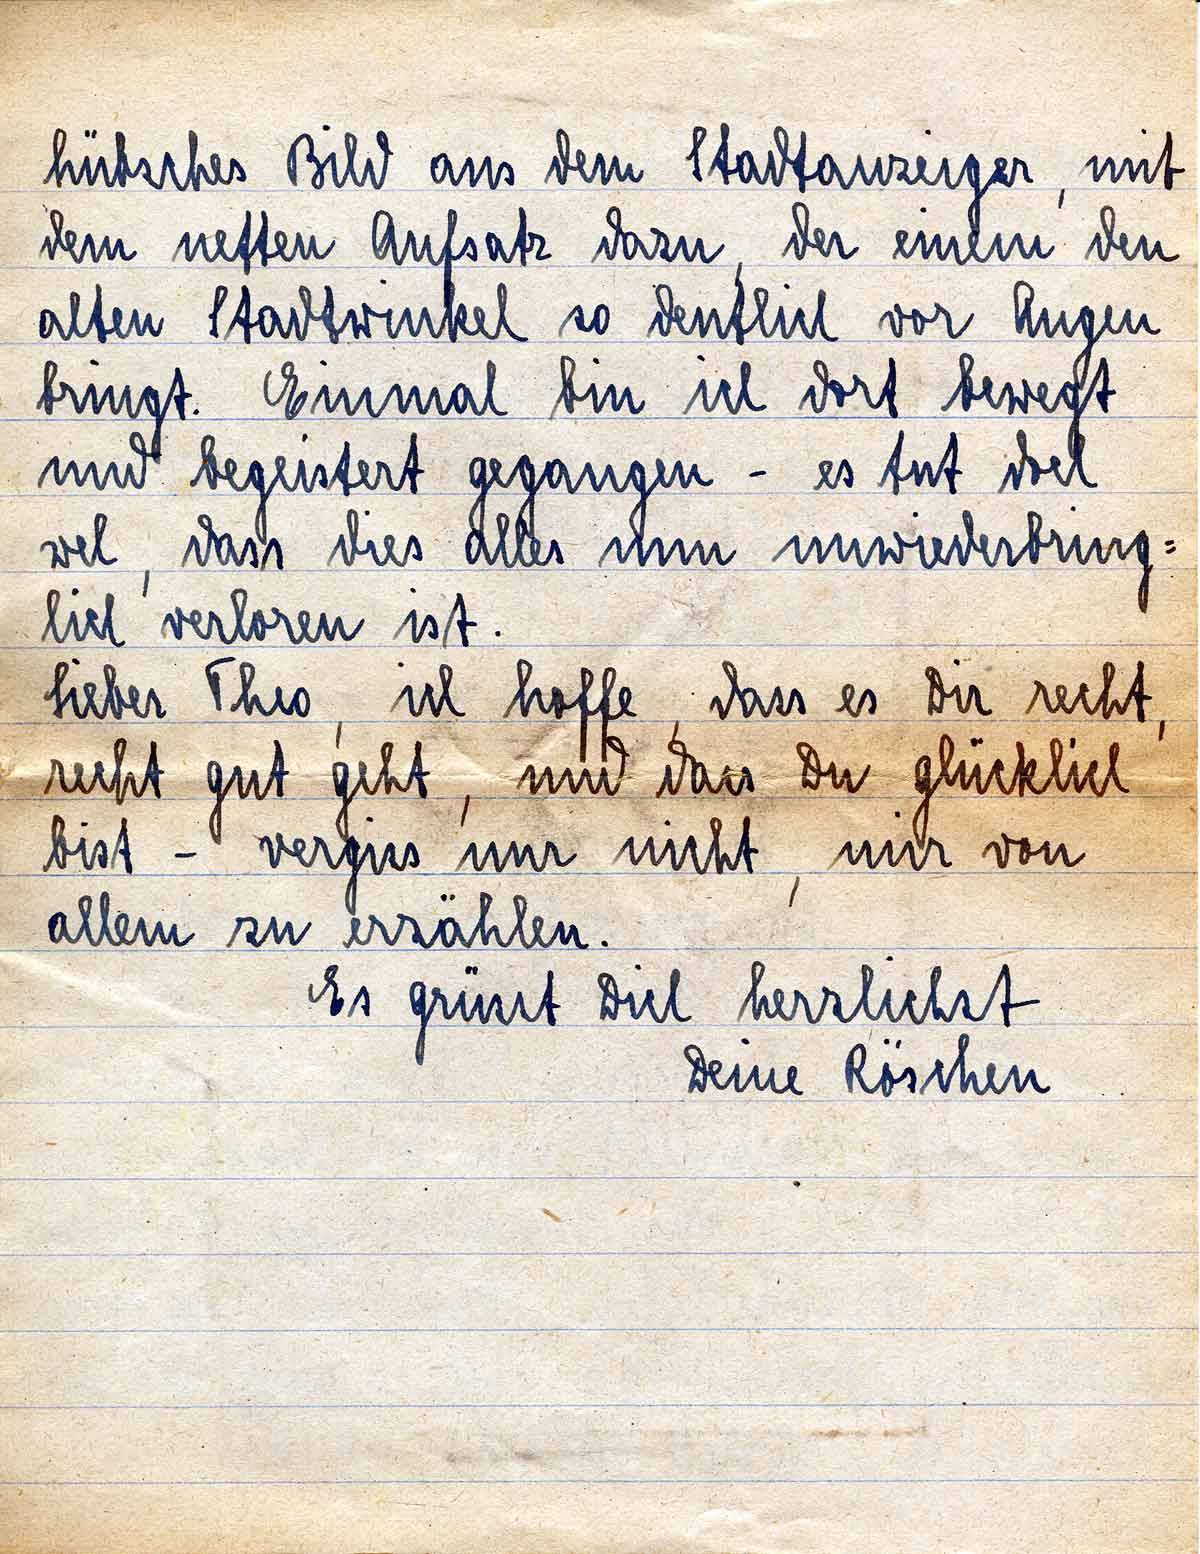 hübsches Bild aus dem Stadtanzeiger, mit
dem netten Aufsatz dazu, der einem den
alten Stadtwinkel so deutlich vor Augen
bringt. Einmal bin ich dort bewegt
und begeistert gegangen - es tut doch
weh, dass dies alles nun unwiederbring=
lich verloren ist.
Lieber Theo, ich hoffe, dass es Dir recht,
recht gut geht, und dass Du glücklich
bist - vergiss nur nicht, mir von
allem zu erzählen.
Es grüsst Dich herzlichst
Deine Röschen